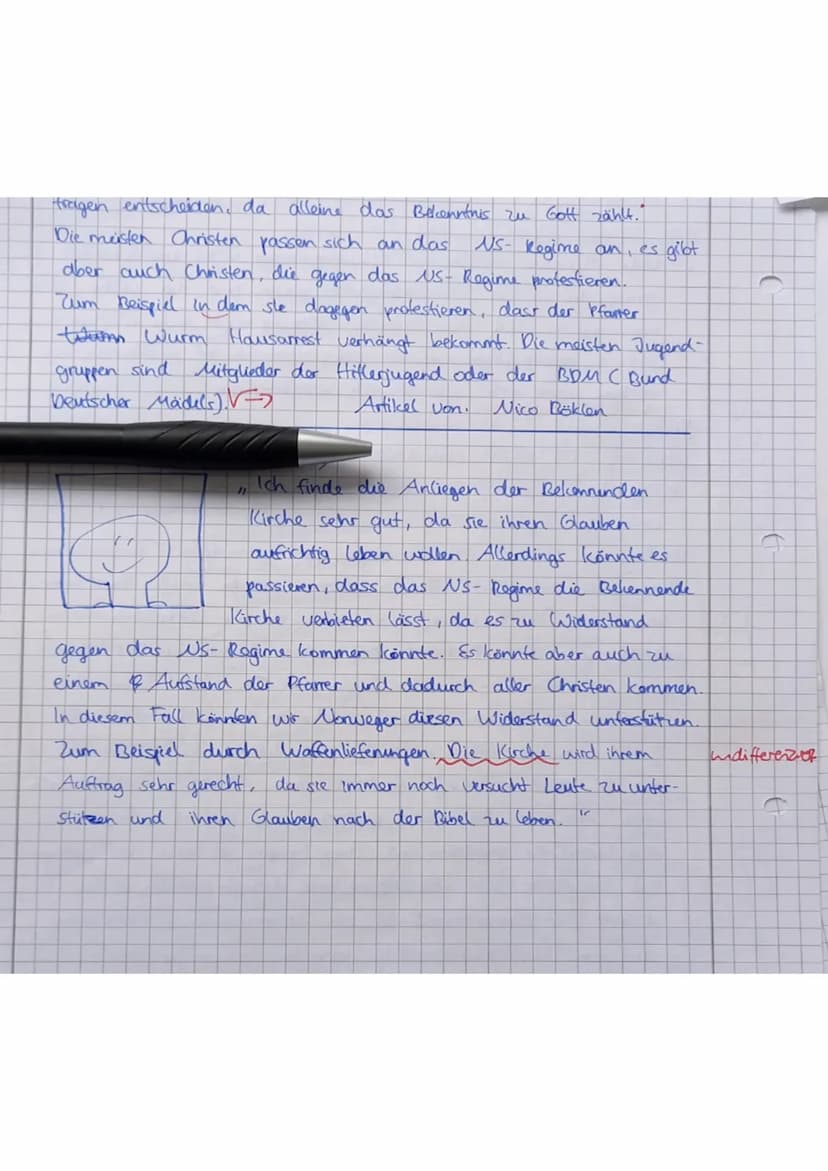 tragen entscheiden, da alleine das Bekenntnis zu Gott zählt."
Die meisten Christen passen sich an das NS-Regime an, es gibt
aber auch Christen, die gegen das NS-Regime protestieren.
Zum Beispiel in dem sie dagegen protestieren, dass der Pfarrer
Wurm Hausarrest verhängt bekommt. Die meisten Jugend-
gruppen sind Mitglieder der Hitlerjugend oder der BDM (Bund
Deutscher Mädels). V→
Artikel von: Nico
"Ich finde die Anliegen der Bekennenden
Kirche sehr gut, da sie ihren Glauben
aufrichtig leben wollen. Allerdings könnte es
passieren, dass das NS-Regime die Bekennende
Kirche verbieten lässt, da es zu Widerstand
gegen das NS-Regime kommen könnte. Es könnte aber auch zu
einem Aufstand der Pfarrer und dadurch aller Christen kommen.
In diesem Fall könnten wir Norweger diesen Widerstand unterstützen.
Zum Beispiel durch Waffenlieferungen. Die Kirche wird ihrem
undifferenziert
Auftrag sehr gerecht, da sie immer noch versucht Leute zu unter-
stützen und ihren Glauben nach der Bibel zu leben."